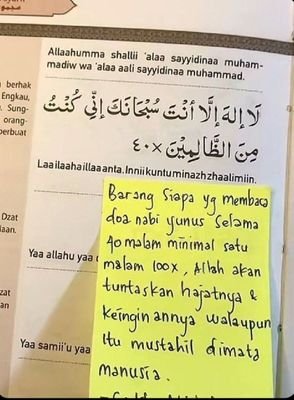 Allaahumma shallii 'alaa sayyidinaa muham-
madiw wa 'alaa aali sayyidinaa muhammad.
berhak
Engkau,
Sung-
orang-
perbuat
لَا إِلٰهَ إِلَّا أَنْتَ سُبْحَانَكَ إِنِّي كُنْتُ
مِنَ الظَّالِمِيْنَ ×٤٠
Laa ilaaha illaa anta. Innii kuntu minazh zhaalimiin.
Barang Siapa yg membaca
doa nabi yunus Selama
40 malam minimal satu
malam 100x, Allah akan
tuntaskan hajatnya &
keinginannya walaupun
itu mustahil dimata
manusia.
Dzat
Yaa allahu yaa
zat
Yaa samii'u yaa
an